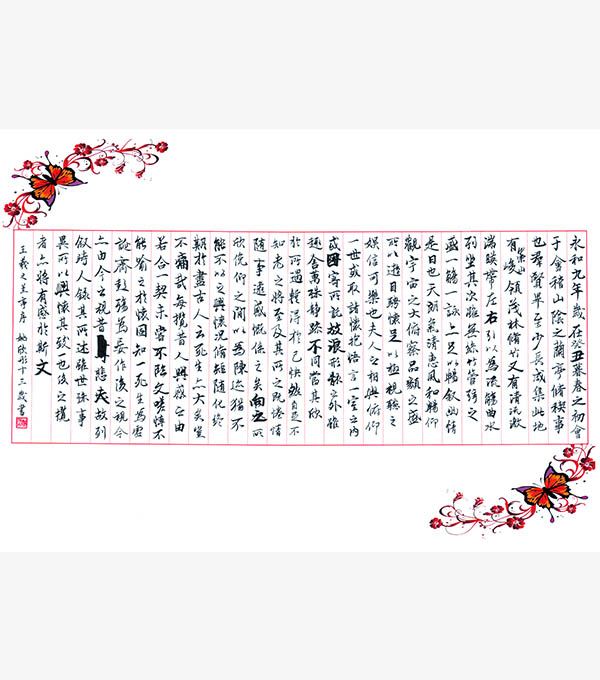 永和九年歲在癸丑暮春之初會
于會稽山陰之蘭亭脩稧事
也羣賢畢至少長咸集此地
有崇山峻領茂林脩竹又有清流激
湍暎帶左右引以為流觴曲水
列坐其次雖無絲竹管弦之
盛一觴一詠亦足以暢敘幽情
是日也天朗氣清惠風和暢仰
觀宇宙之大俯察品類之盛
所以遊目騁懷足以極視聽之
娛信可樂也夫人之相與俯仰
一世或取諸懷抱悟言一室之內
或因寄所託放浪形骸之外雖
趣舍萬殊靜躁不同當其欣
於所遇蹔得於己怏然自足不
知老之將至及其所之既惓情
隨事遷感慨係之矣向之所
欣俛仰之閒以為陳迹猶不
能不以之興懷況脩短隨化終
期於盡古人云死生亦大矣豈
不痛哉每攬昔人興感之由
若合一契未嘗不臨文嗟悼不
能喻之於懷固知一死生為虛
誕齊彭殤為妄作後之視今
亦由今之視昔悲夫故列
敘時人錄其所述雖世殊事
異所以興懷其致一也後之攬
者亦將有感於斯文
王羲之蘭亭序 姚 十三歲書